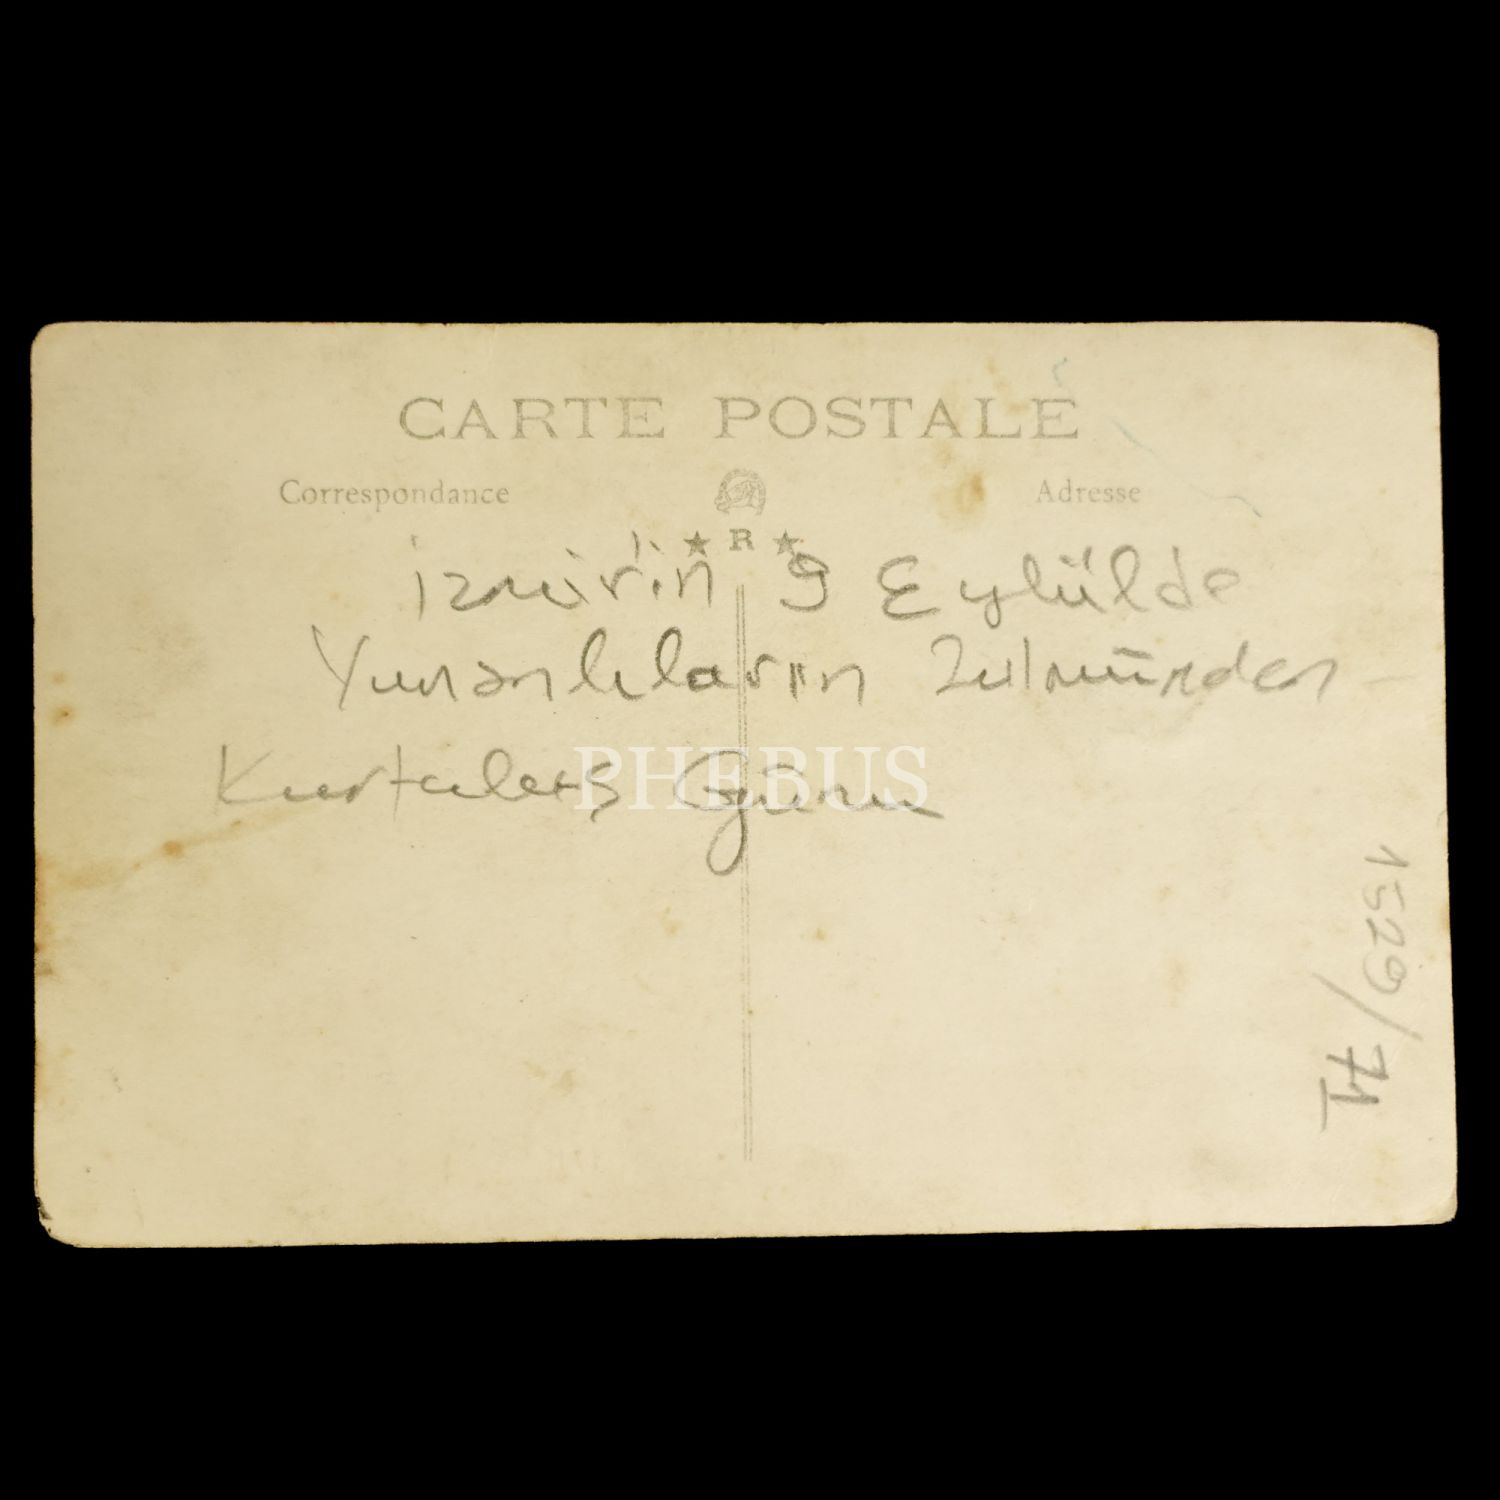 CARTE POSTALE
Correspondance
Adresse
★ R ★
İzmirin 9 Eylülde
Yunanlıların Zulmünden
Kurtuluş Günü
PHEBUS
1529/71